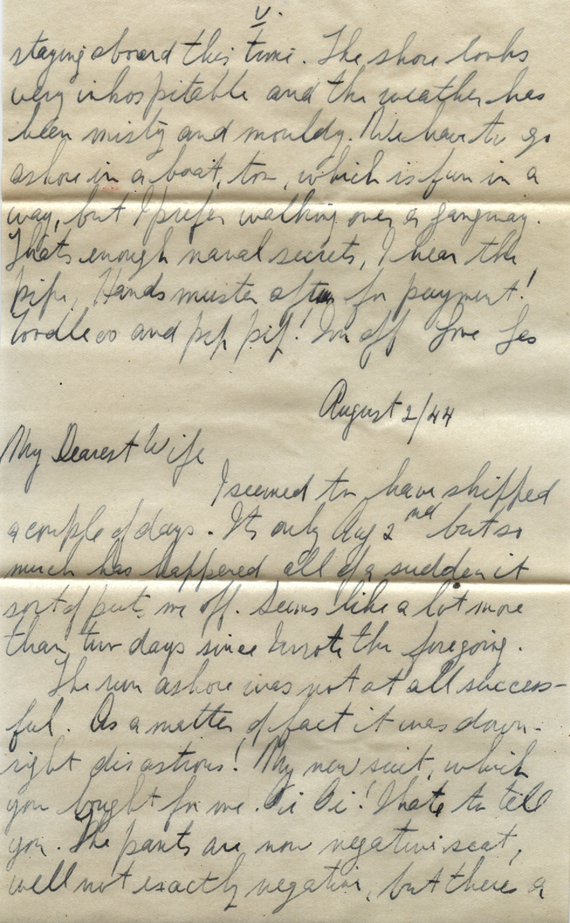 V.
staying aboard this time. The shore looks
very inhospitable and the weather has
been misty and mouldy. We have to go
ashore in a boat, too, which is fun in a
way, but I prefer walking over a gangway.
Thats enough naval secrets, I hear the
pipe, Hands muster aft for payment!
Toodle oo and pip pip! Im off Love Les
August 2/44
My Dearest Wife
I seemed to have skipped
a couple of days. Its only Aug 2nd but so
much has happened all of a sudden it
sort of put me off. Seems like a lot more
than two days since I wrote the foregoing.
The run ashore was not at all success-
ful. As a matter of fact it was down-
right disastrous! My new suit, which
you bought for me. Oi Oi! I hate to tell
you. The pants are now negative seat,
well not exactly negative, but there a